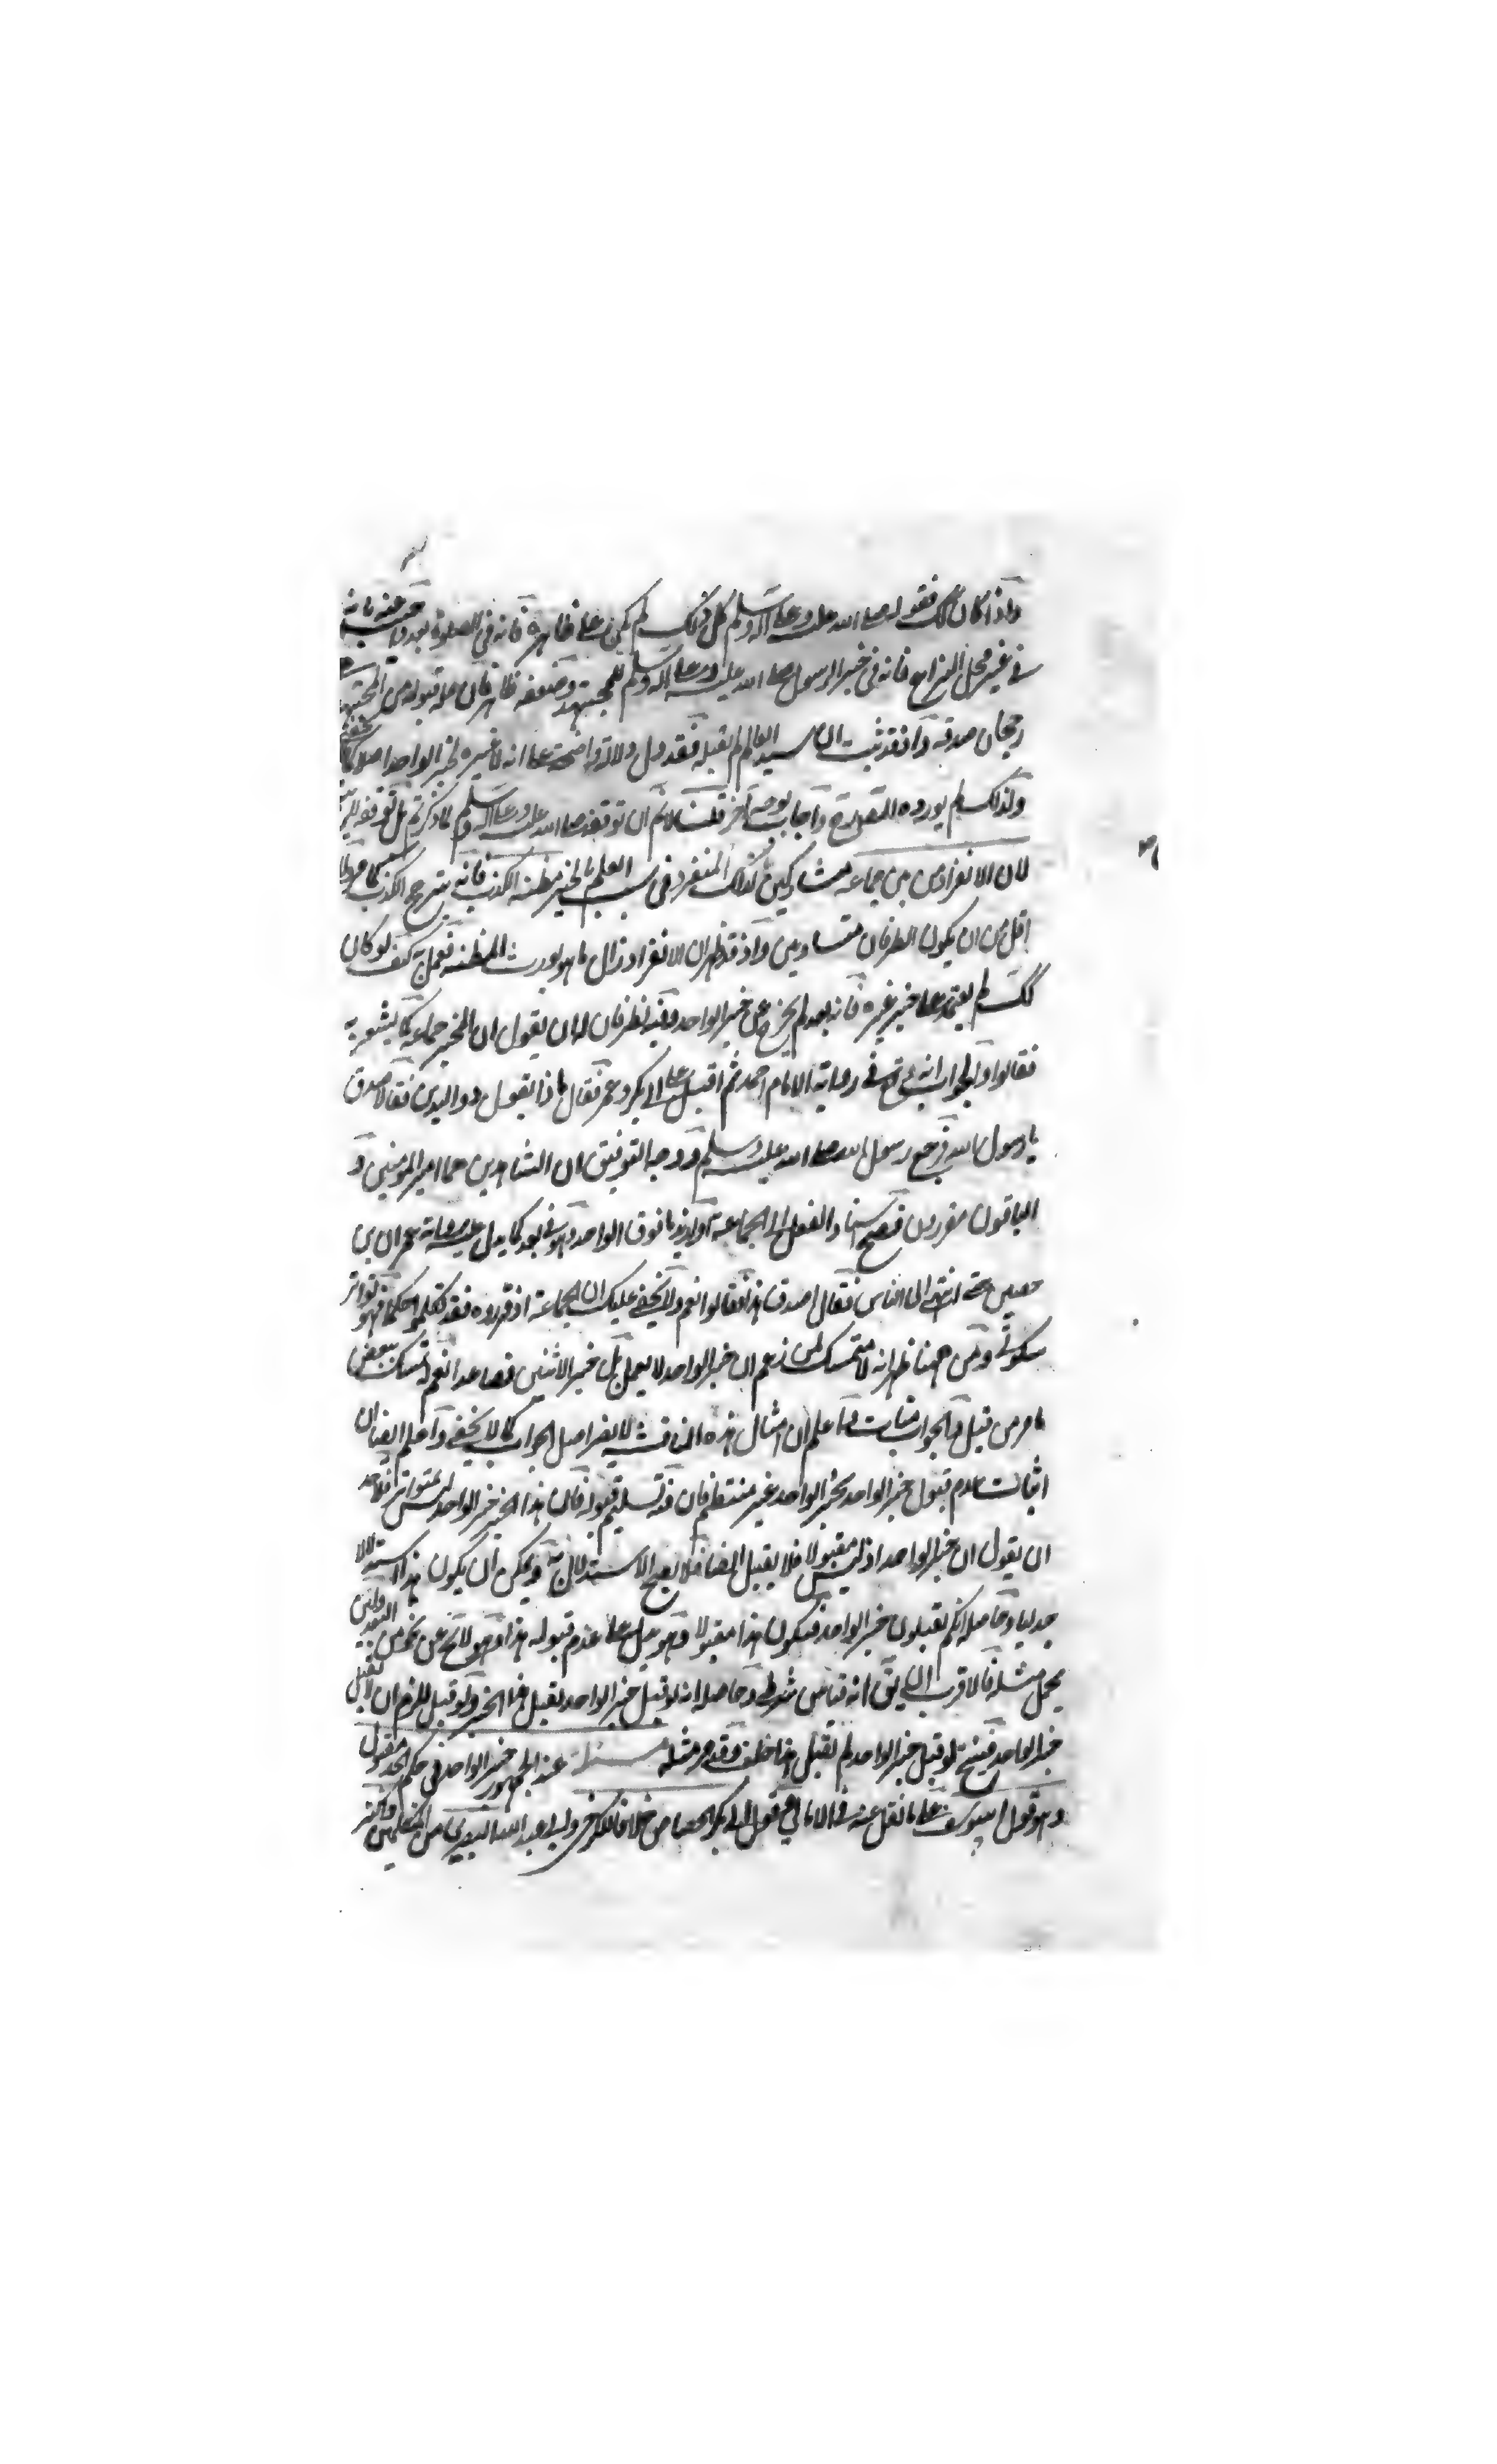 واذا كان كك فقوله صلى الله عليه وعلى اله وسلم كل ذلك لم يكن على ظاهره فانه في الصلوة بعد واجيب عنه بانه
في غير محل النزاع فانه في خبر الرسول صلى الله عليه وعلى اله وسلم للمجتهد وضعفه ظاهر فان مدار قبوله من المجتهد
رجحان صدقه واذ قد ثبت ان سيد العالم لم يقبله فقد دل دلالة واضحة على انه لا عبرة لخبر الواحد اصلا
ولذلك لم يورده المص وأجاب بوجه آخر قلنا لانم ان توقفه صلى الله عليه وعلى اله وسلم لما ذكرتم بل توقفه للريبة
لان الانفراد من بين جماعة مشاركين لذلك المنفرد في سبب العلم بالخبر مظنة الكذب فانه يترجح الكذب
اقل من ان يكون الطرفان متساويين واذ قد ظهر ان الانفراد زال ما هو يورث المظنة فعمل به كيف لو كان
كك لم يعتمد على خبر غيره فانه بعد لم يخرج عن خبر الواحد وفيه نظر فان له ان يقول ان المخبر جماعة كما يشعر به
فقالوا والجواب انه في رواية الامام احمد ثم اقبل على ابي بكر وعمر فقال ماذا يقول ذو اليدين فقالا صدق
يا رسول الله فرجع رسول الله صلى الله عليه وسلم ووجه التوفيق ان الشاهدين هما امير المؤمنين و
الباقون مقررون فصح اسناد الفعل الى الجماعة او اريد ما فوق الواحد وهو في بعد كما يدل عليه رواية عمران بن
حصين حتى انتهى الى الناس فقال اصدق هذا فقالوا نعم ولا يخفى عليك ان الجماعة اذ قرروه فقد تكلموا حكما فهو تواتر
سكوتي ومن ههنا ظهر انه لا متمسك لمن زعم ان خبر الواحد لا يعمل بل خبر الاثنين فصاعدا نعم له تمسك ببعض
ما مر من قبل والجواب واعلم ان امثال هذه المناقشة لا يضر اصل الجواب كما لا يخفى واعلم ايضا ان
اثبات عدم قبول خبر الواحد بخبر الواحد غير منتظم فان فيه تسليم قبوله فان هذا الخبر خبر الواحد ليس بمتواتر فلاحد
ان يقول ان خبر الواحد اذ ليس مقبولا فلا يقبل ايضا فلا يصح الاستدلال به ويمكن أن يكون هذا استدلالا
جدليا وحاصله انكم تقبلون خبر الواحد فيكون هذا مقبولا وهو يدل على عدم قبوله هذا وهو لا يخ عن نحو من البعد واين
يحمل مثله فالاقرب ان يق انه قياس شرطي وحاصله انه لو قبل خبر الواحد لقبل هذا الخبر ولو قبل للزم ان لا يقبل
خبر الواحد فينتج لو قبل خبر الواحد لم يقبل هذا خلف وقد مر مثله مسئلة عند الجمهور خبر الواحد في حكم الحد مقبول
وهو قول ابي يوسف على ما نقل عنه في الامالي وهو قول ابي بكر الجصاص خلافا للكرخي وابي عبد الله البصري من المتكلمين واكثر